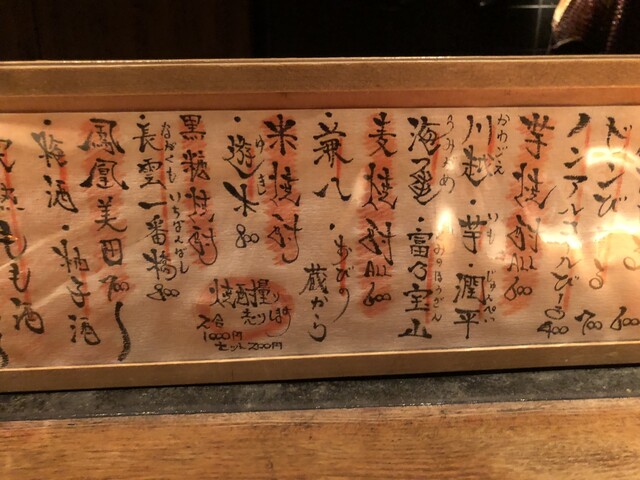 600
ドンび
る
700
ノンアルコールびーる
400
芋焼酎 ALL 600
かわごえ
川越・芋・潤平
いも じゅんぺい
うみ
海・富乃宝山
とみのほうざん
麦焼酎 ALL 600
・兼八
・わびの
蔵から
米焼酎
ゆき
800
焼酎量り売り
2合
1000円
セット200円
黒糖焼酎
ながくも いちばんばし
・長雲一番橋 800
鳳凰美田 700〜
・梅酒・柚子酒
もも酒